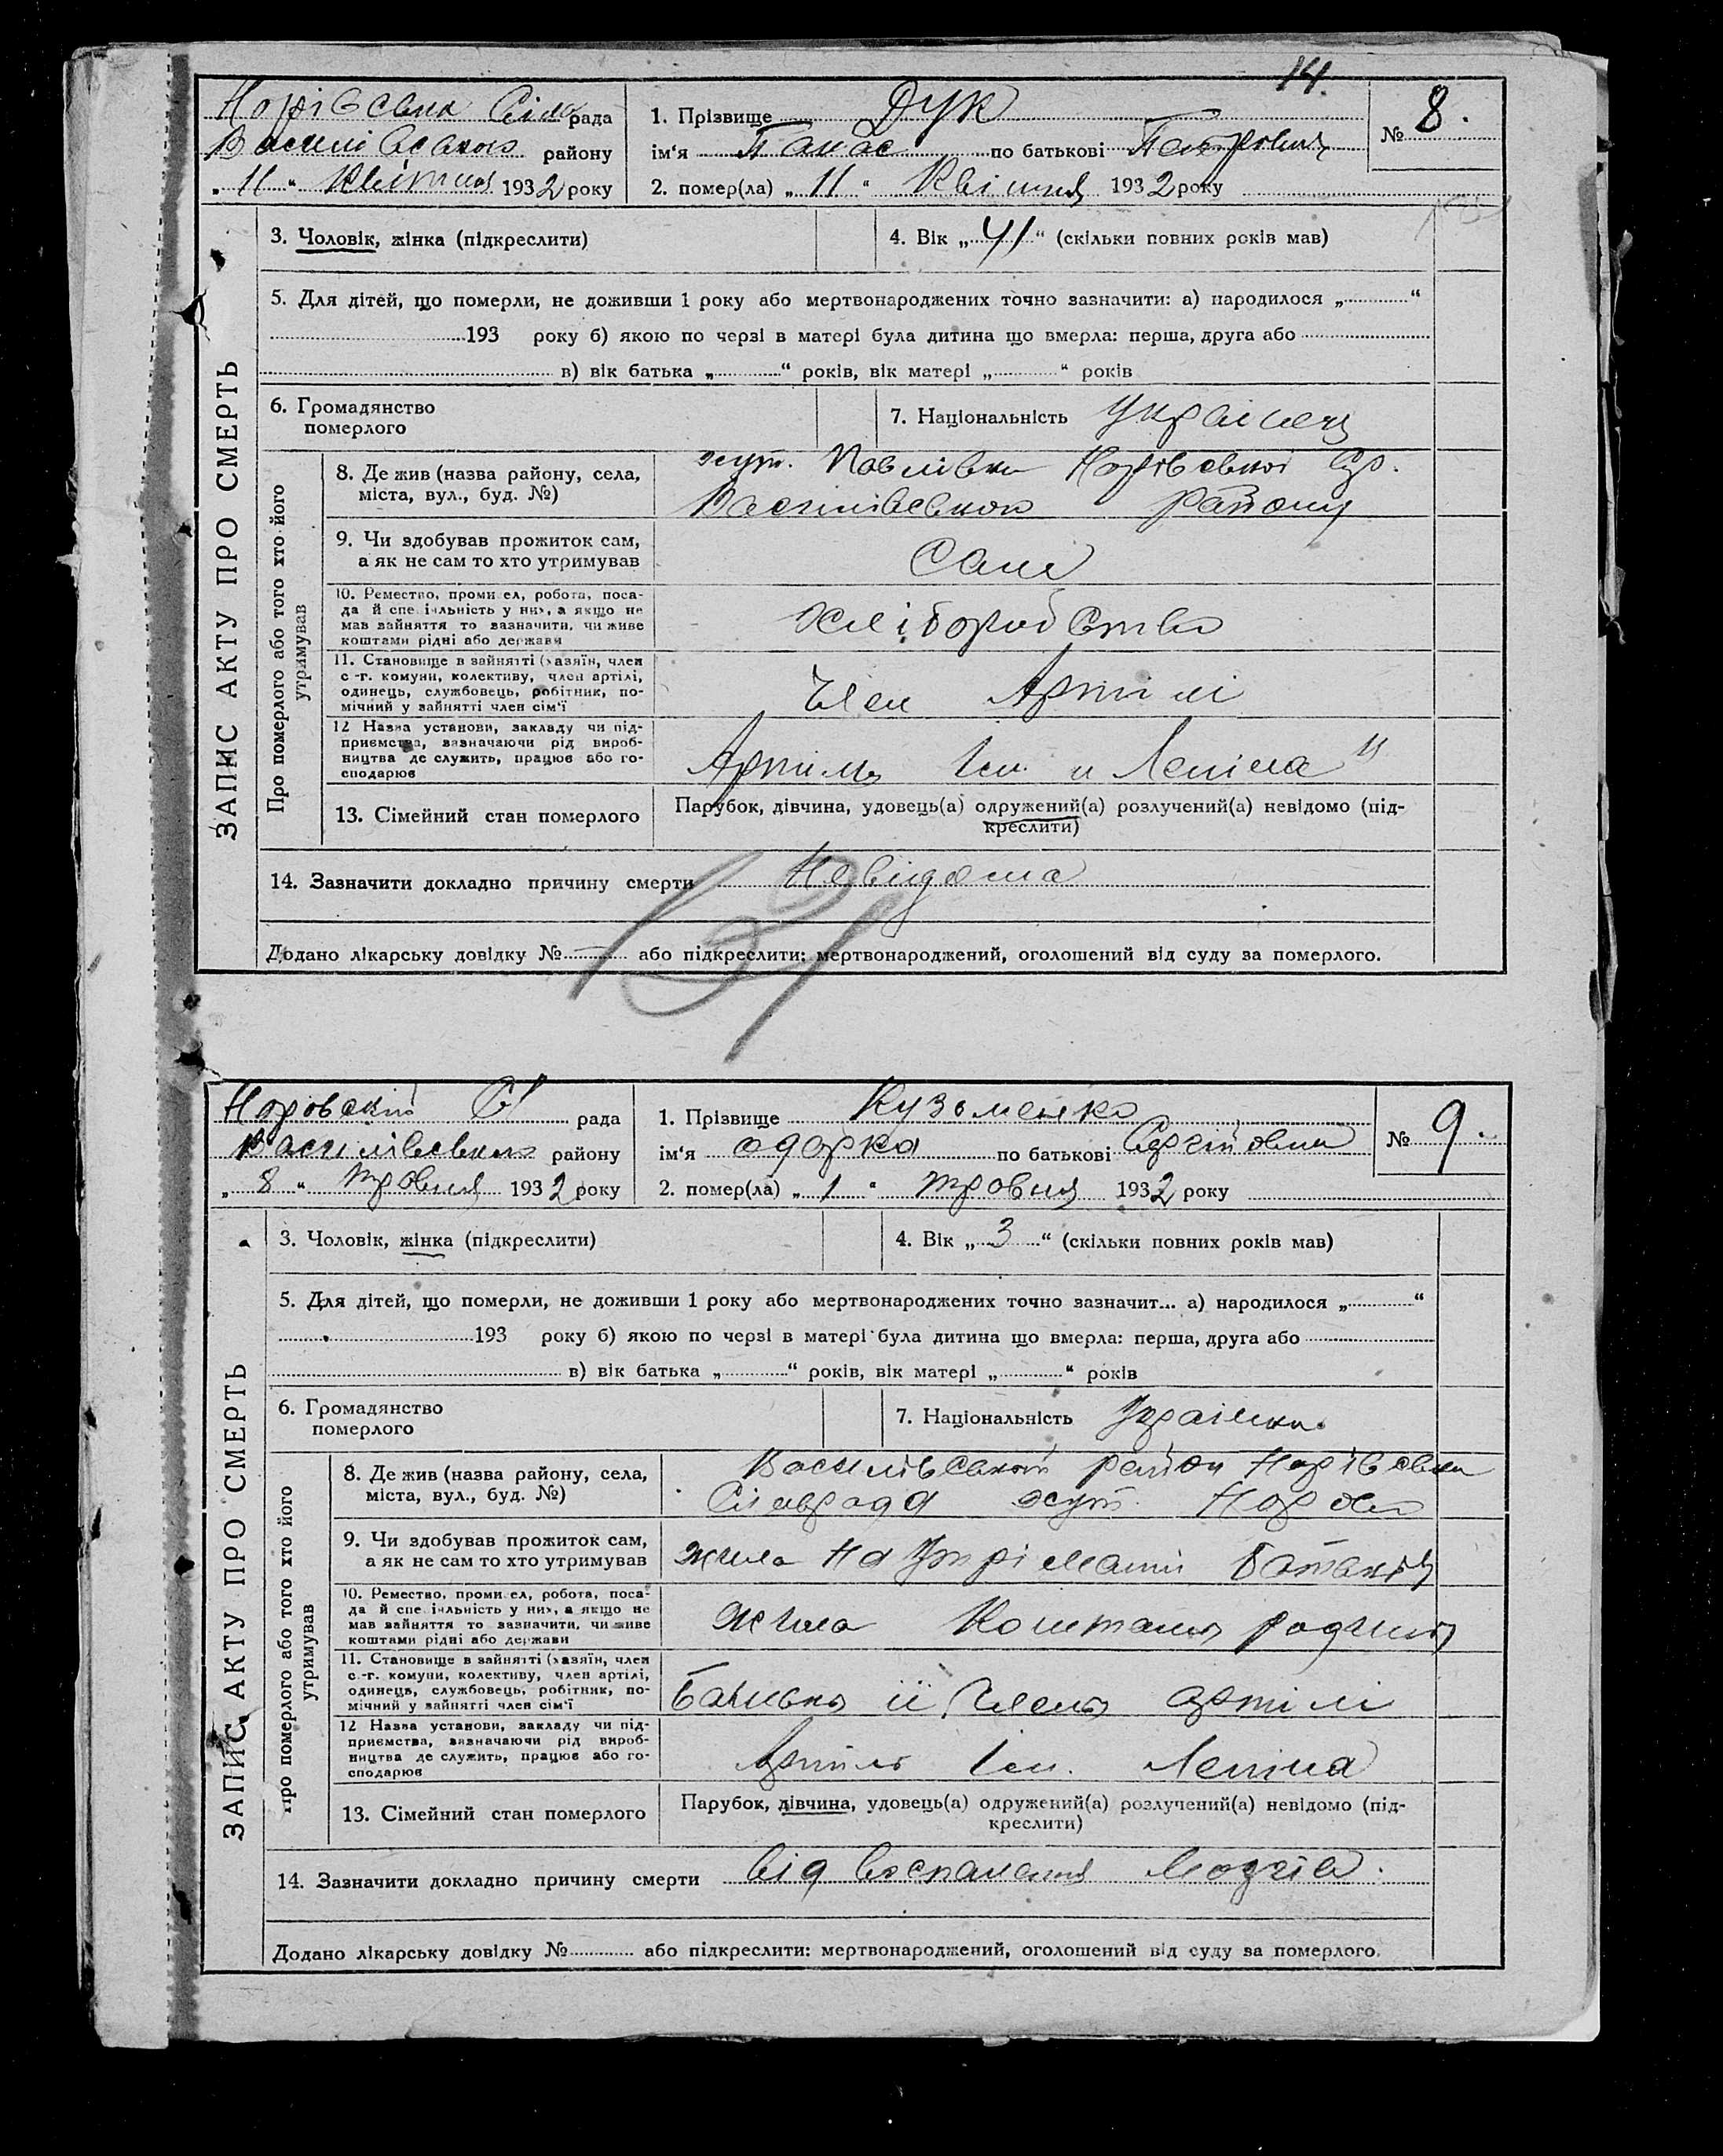 14.
Норівська Сіль рада
Василівського району
„ 11 “ Квітня 1932 року
1. Прізвище Дук
ім'я Панас по батькові Петрович
2. помер(ла) „ 11 “ Квітня 1932 року
№ 8.
ЗАПИС АКТУ ПРО СМЕРТЬ
3. Чоловік, жінка (підкреслити)
4. Вік „ 41 “ (скільки повних років мав)
5. Для дітей, що померли, не доживши 1 року або мертвонароджених точно зазначити: а) народилося „ “
193 року б) якою по черзі в матері була дитина що вмерла: перша, друга або
в) вік батька „ “ років, вік матері „ “ років
6. Громадянство
померлого
7. Національність Українец
Про померлого або того хто його
утримував
8. Де жив (назва району, села,
міста, вул., буд. №)
хут. Павлівка Норівської Ср.
Василівського району
9. Чи здобував прожиток сам,
а як не сам то хто утримував
Сам
10. Ремество, промисел, робота, поса-
да й спеціяльність у них, а якщо не
мав зайняття то зазначити, чи живе
коштами рідні або держави
Хліборобство
11. Становище в зайнятті (хазяїн, член
с.-г. комуни, колективу, член артілі,
одинець, службовець, робітник, по-
мічний у зайнятті член сім'ї
Член Артілі
12 Назва установи, закладу чи під-
приємства, зазначаючи рід вироб-
ництва де служить, працює або го-
сподарює
Артиль Ім. „Леніна“
13. Сімейний стан померлого
Парубок, дівчина, удовець(а) одружений(а) розлучений(а) невідомо (під-
креслити)
14. Зазначити докладно причину смерти Невидома
Додано лікарську довідку № або підкреслити: мертвонароджений, оголошений від суду за померлого.
Норовський С/ рада
Василівського району
„ 8 “ травня 1932 року
1. Прізвище Кузьменко
ім'я одарка по батькові Сергійовна
2. помер(ла) „ 1 “ травня 1932 року
№ 9.
ЗАПИС АКТУ ПРО СМЕРТЬ
3. Чоловік, жінка (підкреслити)
4. Вік „ 3 “ (скільки повних років мав)
5. Для дітей, що померли, не доживши 1 року або мертвонароджених точно зазначит... а) народилося „ “
193 року б) якою по черзі в матері була дитина що вмерла: перша, друга або
в) вік батька „ “ років, вік матері „ “ років
6. Громадянство
померлого
7. Національність Українка.
Про померлого або того хто його
утримував
8. Де жив (назва району, села,
міста, вул., буд. №)
Василівський район Норівська
Сільрада хут.
9. Чи здобував прожиток сам,
а як не сам то хто утримував
жила на утріманні батьків
10. Ремество, промисел, робота, поса-
да й спеціяльність у них, а якщо не
мав зайняття то зазначити, чи живе
коштами рідні або держави
жила коштами родичів
11. Становище в зайнятті (хазяїн, член
с.-г. комуни, колективу, член артілі,
одинець, службовець, робітник, по-
мічний у зайнятті член сім'ї
Батько її член артілі
12 Назва установи, закладу чи під-
приємства, зазначаючи рід вироб-
ництва де служить, працює або го-
сподарює
Артиль Ім. Леніна
13. Сімейний стан померлого
Парубок, дівчина, удовець(а) одружений(а) розлучений(а) невідомо (під-
креслити)
14. Зазначити докладно причину смерти від воспалення мозгів.
Додано лікарську довідку № або підкреслити: мертвонароджений, оголошений від суду за померлого.